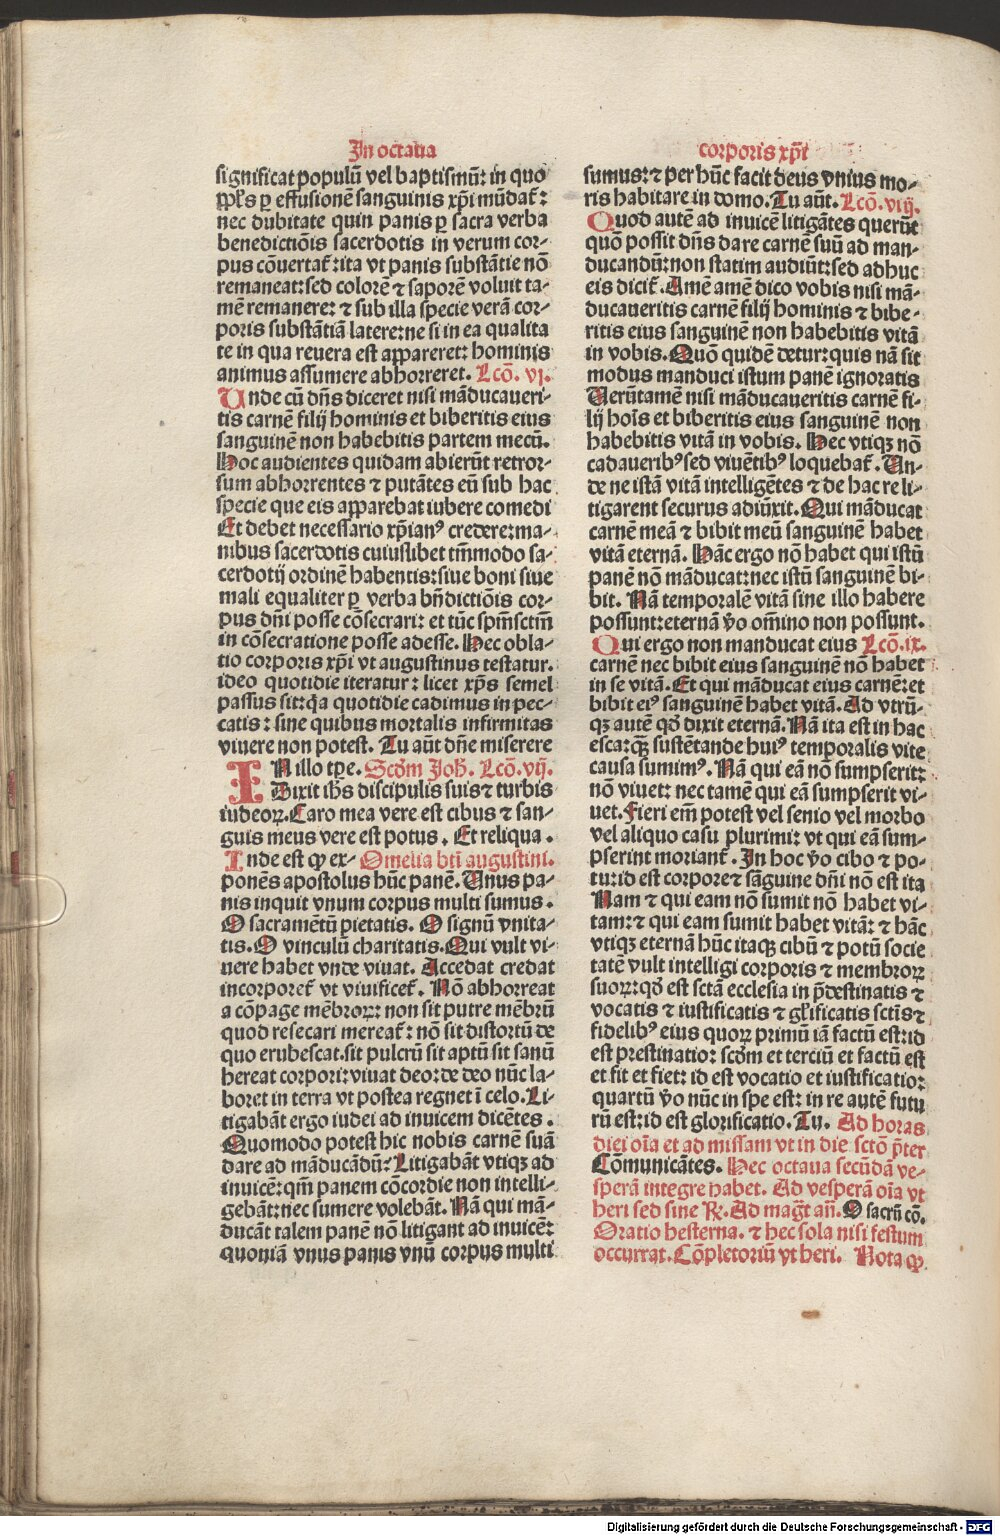 In octaua
significat populū vel baptismū: in quo
ppl's ꝑ effusionē sanguinis xp̄i mūdat᷑:
nec dubitate quin panis ꝑ sacra verba
benedictiōis sacerdotis in verum cor-
pus cōuertat᷑: ita vt panis substātie nō
remaneat: sed colorē ⁊ saporē voluit ta-
mē remanere: ⁊ sub illa specie verā cor-
poris substātiā latere: ne si in ea qualita
te in qua reuera est appareret: hominis
animus assumere abhorreret. Lcō. vj.
Unde cū dn̄s diceret nisi māducaueri-
tis carnē filij hominis et biberitis eius
sanguinē non habebitis partem mecū.
Hoc audientes quidam abierūt retror-
sum abhorrentes ⁊ putātes eū sub hac
specie que eis apparebat iubere comedi
Et debet necessario xp̄ianꝰ credere: ma-
nibus sacerdotis cuiuslibet tm̄modo sa-
cerdotij ordinē habentis: siue boni siue
mali equaliter ꝑ verba bn̄dictiōis cor-
pus dn̄i posse cōsecrari: et tūc spm̄sctm̄
in cōsecratione posse adesse. Hec obla-
tio corporis xp̄i vt augustinus testatur.
ideo quotidie iteratur: licet xp̄s semel
passus sit: q̄a quotidie cadimus in pec-
catis: sine quibus mortalis infirmitas
viuere non potest. Tu aūt dn̄e miserere
IN illo tp̄e. Scd̄m Joh̄. Lcō. vij.
Dixit ih̄s discipulis suis ⁊ turbis
iudeoꝝ. Caro mea vere est cibus ⁊ san-
guis meus vere est potus. Et reliqua.
Inde est ꝙ ex- Omelia bt̄i augustini.
ponēs apostolus hūc panē. Unus pa-
nis inquit vnum corpus multi sumus.
O sacramētū pietatis. O signū vnita-
tis. O vinculū charitatis. Qui vult vi-
uere habet vnde viuat. Accedat credat
incorporet᷑ vt viuificet᷑. Nō abhorreat
a cōpage mēbroꝝ: non sit putre mēbrū
quod resecari mereat᷑: nō sit distortū de
quo erubescat. sit pulcrū sit aptū sit sanū
hereat corpori: viuat deo: de deo nūc la-
boret in terra vt postea regnet ī celo. Li-
tigabāt ergo iudei ad inuicem dicētes.
Quomodo potest hic nobis carnē suā
dare ad māducādū: Litigabāt vtiqꝫ ad
inuicē: qm̄ panem cōcordie non intelli-
gebāt: nec sumere volebāt. Nā qui mā-
ducāt talem panē nō litigant ad inuicē:
quoniā vnus panis vnū corpus multi
corporis xp̄i
sumus: ⁊ per hūc facit deus vnius mo-
ris habitare in domo. Tu aūt. Lcō. viij.
Quod autē ad inuicē litigātes querūt
quō possit dn̄s dare carnē suū ad man-
ducandū: non statim audiūt: sed adhuc
eis dicit᷑. Amē amē dico vobis nisi mā-
ducaueritis carnē filij hominis ⁊ bibe-
ritis eius sanguinē non habebitis vitā
in vobis. Quō quidē detur: quis nā sit
modus māduci istum panē ignoratis
Uerūtamē nisi māducaueritis carnē fi-
lij hoīs et biberitis eius sanguinē non
habebitis vitā in vobis. Hec vtiqꝫ nō
cadaueribꝰ sed viuētibꝰ loquebat᷑. Un-
de ne istā vitā intelligētes ⁊ de hac re li-
tigarent securus adiūxit. Qui māducat
carnē meā ⁊ bibit meū sanguinē habet
vitā eternā. Hāc ergo nō habet qui istū
panē nō māducat: nec istū sanguinē bi-
bit. Nā temporalē vitā sine illo habere
possunt: eternā ꝟo om̄ino non possunt.
Qui ergo non manducat eius Lcō. ix.
carnē nec bibit eius sanguinē nō habet
in se vitā. Et qui māducat eius carnē: et
bibit eiꝰ sanguinē habet vitā. Ad vtrū-
qꝫ autē qd̄ dixit eternā. Nā ita est in hac
esca: q̄ꝫ sustētande huiꝰ temporalis vite
causa sumimꝰ. Nā qui eā nō sumpserit:
nō viuet: nec tamē qui eā sumpserit vi-
uet. Fieri em̄ potest vel senio vel morbo
vel aliquo casu plurimi: vt qui eā sum-
pserint moriant᷑. In hoc ꝟo cibo ⁊ po-
tu: id est corpore ⁊ sāguine dn̄i nō est ita
Nam ⁊ qui eam nō sumit nō habet vi-
tam: ⁊ qui eam sumit habet vitā: ⁊ hāc
vtiqꝫ eternā hūc itaqꝫ cibū ⁊ potū socie
tatē vult intelligi corporis ⁊ membroꝝ
suoꝝ: qd̄ est sctā ecclesia in p̄destinatis ⁊
vocatis ⁊ iustificatis ⁊ gl'ificatis sctīs ⁊
fidelibꝰ eius quoꝝ primū iā factū est: id
est prestinatio: scd̄m et terciū et factū est
et fit et fiet: id est vocatio et iustificatio:
quartū ꝟo nūc in spe est: in re autē futu
rū est: id est glorificatio. Tu. Ad horas
diei oīa et ad missam vt in die sctō p̄ter
Cōmunicātes. Hec octaua secūdā ve-
sperā integre habet. Ad vesperā oīa vt
heri sed sine ℟. Ad mag̅t an̄. O sacrū cō.
Oratio hesterna. ⁊ hec sola nisi festum
occurrat. Cōpletoriū vt heri. Nota ꝙ
Digitalisierung gefördert durch die Deutsche Forschungsgemeinschaft - DFG